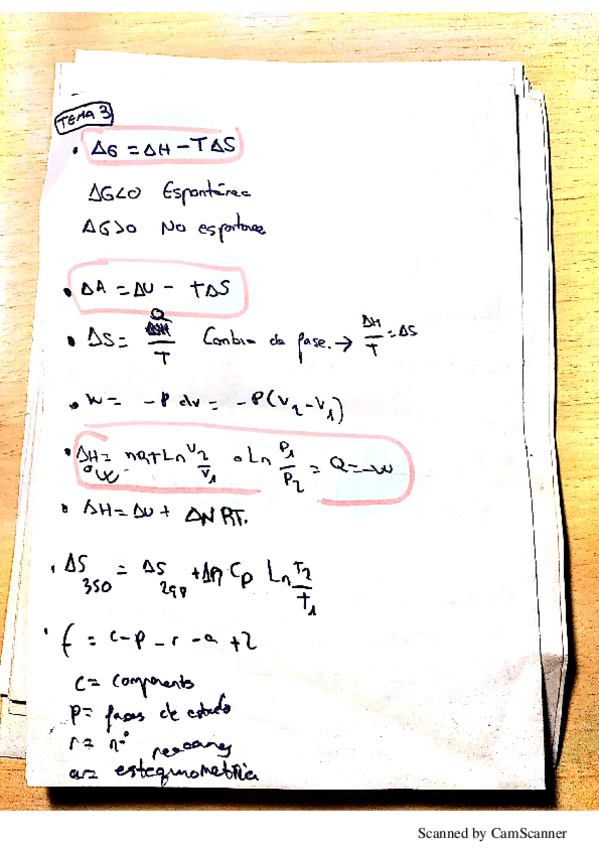 TEMA 3
• ΔG = ΔH - TΔS
ΔG<0 Espontánea
ΔG>0 No espontanea
• ΔA = ΔU - TΔS
• ΔS = Q/T Cambio de fase. → ΔH/T = ΔS
• W = -P dv = -P(V2-V1)
• ΔH = Ln V2/V1 o Ln P1/P2 = Q = -W
• ΔH = ΔU + ΔN RT.
• ΔS350 = ΔS298 + Δn Cp Ln T2/T1
• f = c-p-r-a+2
c = components
p = fases de estado
r = nº
a = estequiometria
Scanned by CamScanner